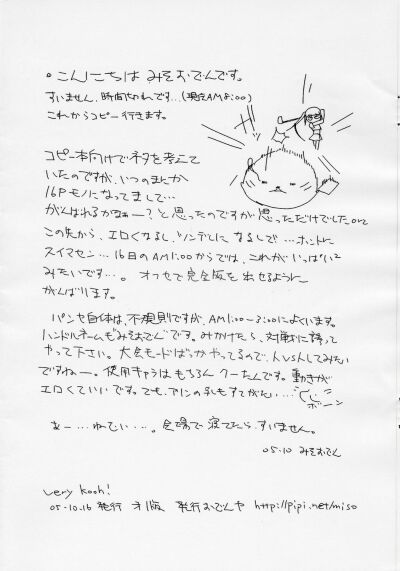 。こんにちは みそおでんです。
すいません、時間切れです…(現在AM8:00)
これからコピー行きます。
コピー本向けでネタを考えて
いたのですが、いつのまにか
16Pモノになってまして…
がんばれるかなぁー?と思ったのですが思っただけでしたorz
この先から、エロくなるし、ツンデレになるしで…ホントに
スイマセン…16日のAM1:00からでは、これがいっぱい²
みたいです…。オフセで完全版を出せるように
がんばります。
パンヤ自体は、不規則ですが、AM1:00~3:00によくいます。
ハンドルネームも"みそおでん"です。みかけたら、対戦に誘って
やって下さい。大会モードばっかやってるので、人VS人してみたい
ですねー。使用キャラはもちろん クーたんです。動きが
エロくていいです。でも、アリンの乳もすてがたい…
ボーン
あー…ねむい…。会場で寝てたら、すいません。
05.10 みそおでん
very kooh!
05.10.16 発行 オ1版 発行おでんや http://pipi.net/miso